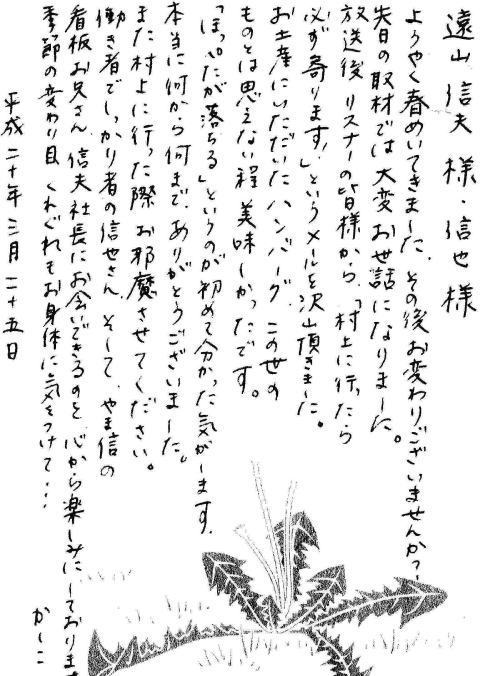 遠山 信夫 様・信也様
ようやく春めいてきました。その後お変わりございませんか?
先日の取材では大変お世話になりました。
放送後 リスナーの皆様から、「村上に行ったら
必ず寄ります!」というメールを沢山頂きました。
お土産にいただいたハンバーグ、この世の
ものとは思えない程 美味しかったです。
「ほっぺたが落ちる」というのが初めて分かった気がします。
本当に何から何まで、ありがとうございました。
また村上に行った際、お邪魔させてください。
働き者でしっかり者の信也さん、そして、やま信の
看板お兄さん、信夫社長にお会いできるのを、心から楽しみにしております
季節の変わり目、くれぐれもお身体に気をつけて…
平成二十年 三月二十五日
かしこ